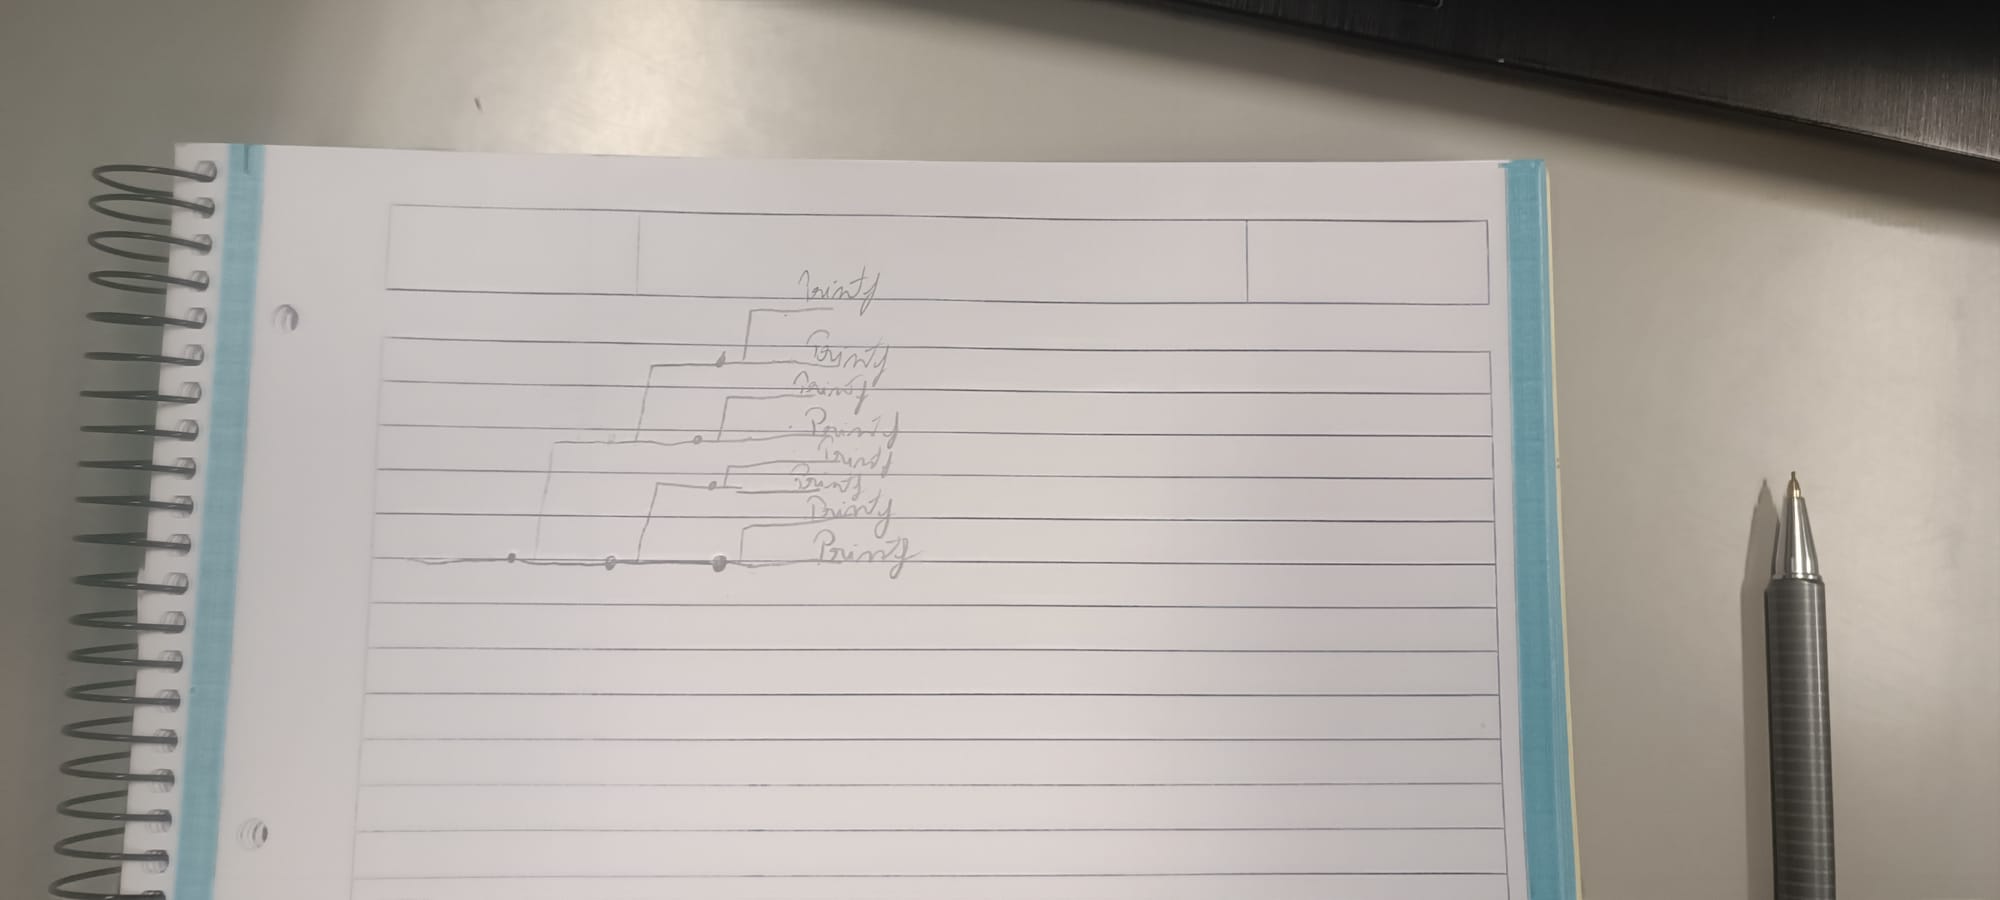 Printf
Printf
Printf
Printf
Printf
Printf
Printf
Printf